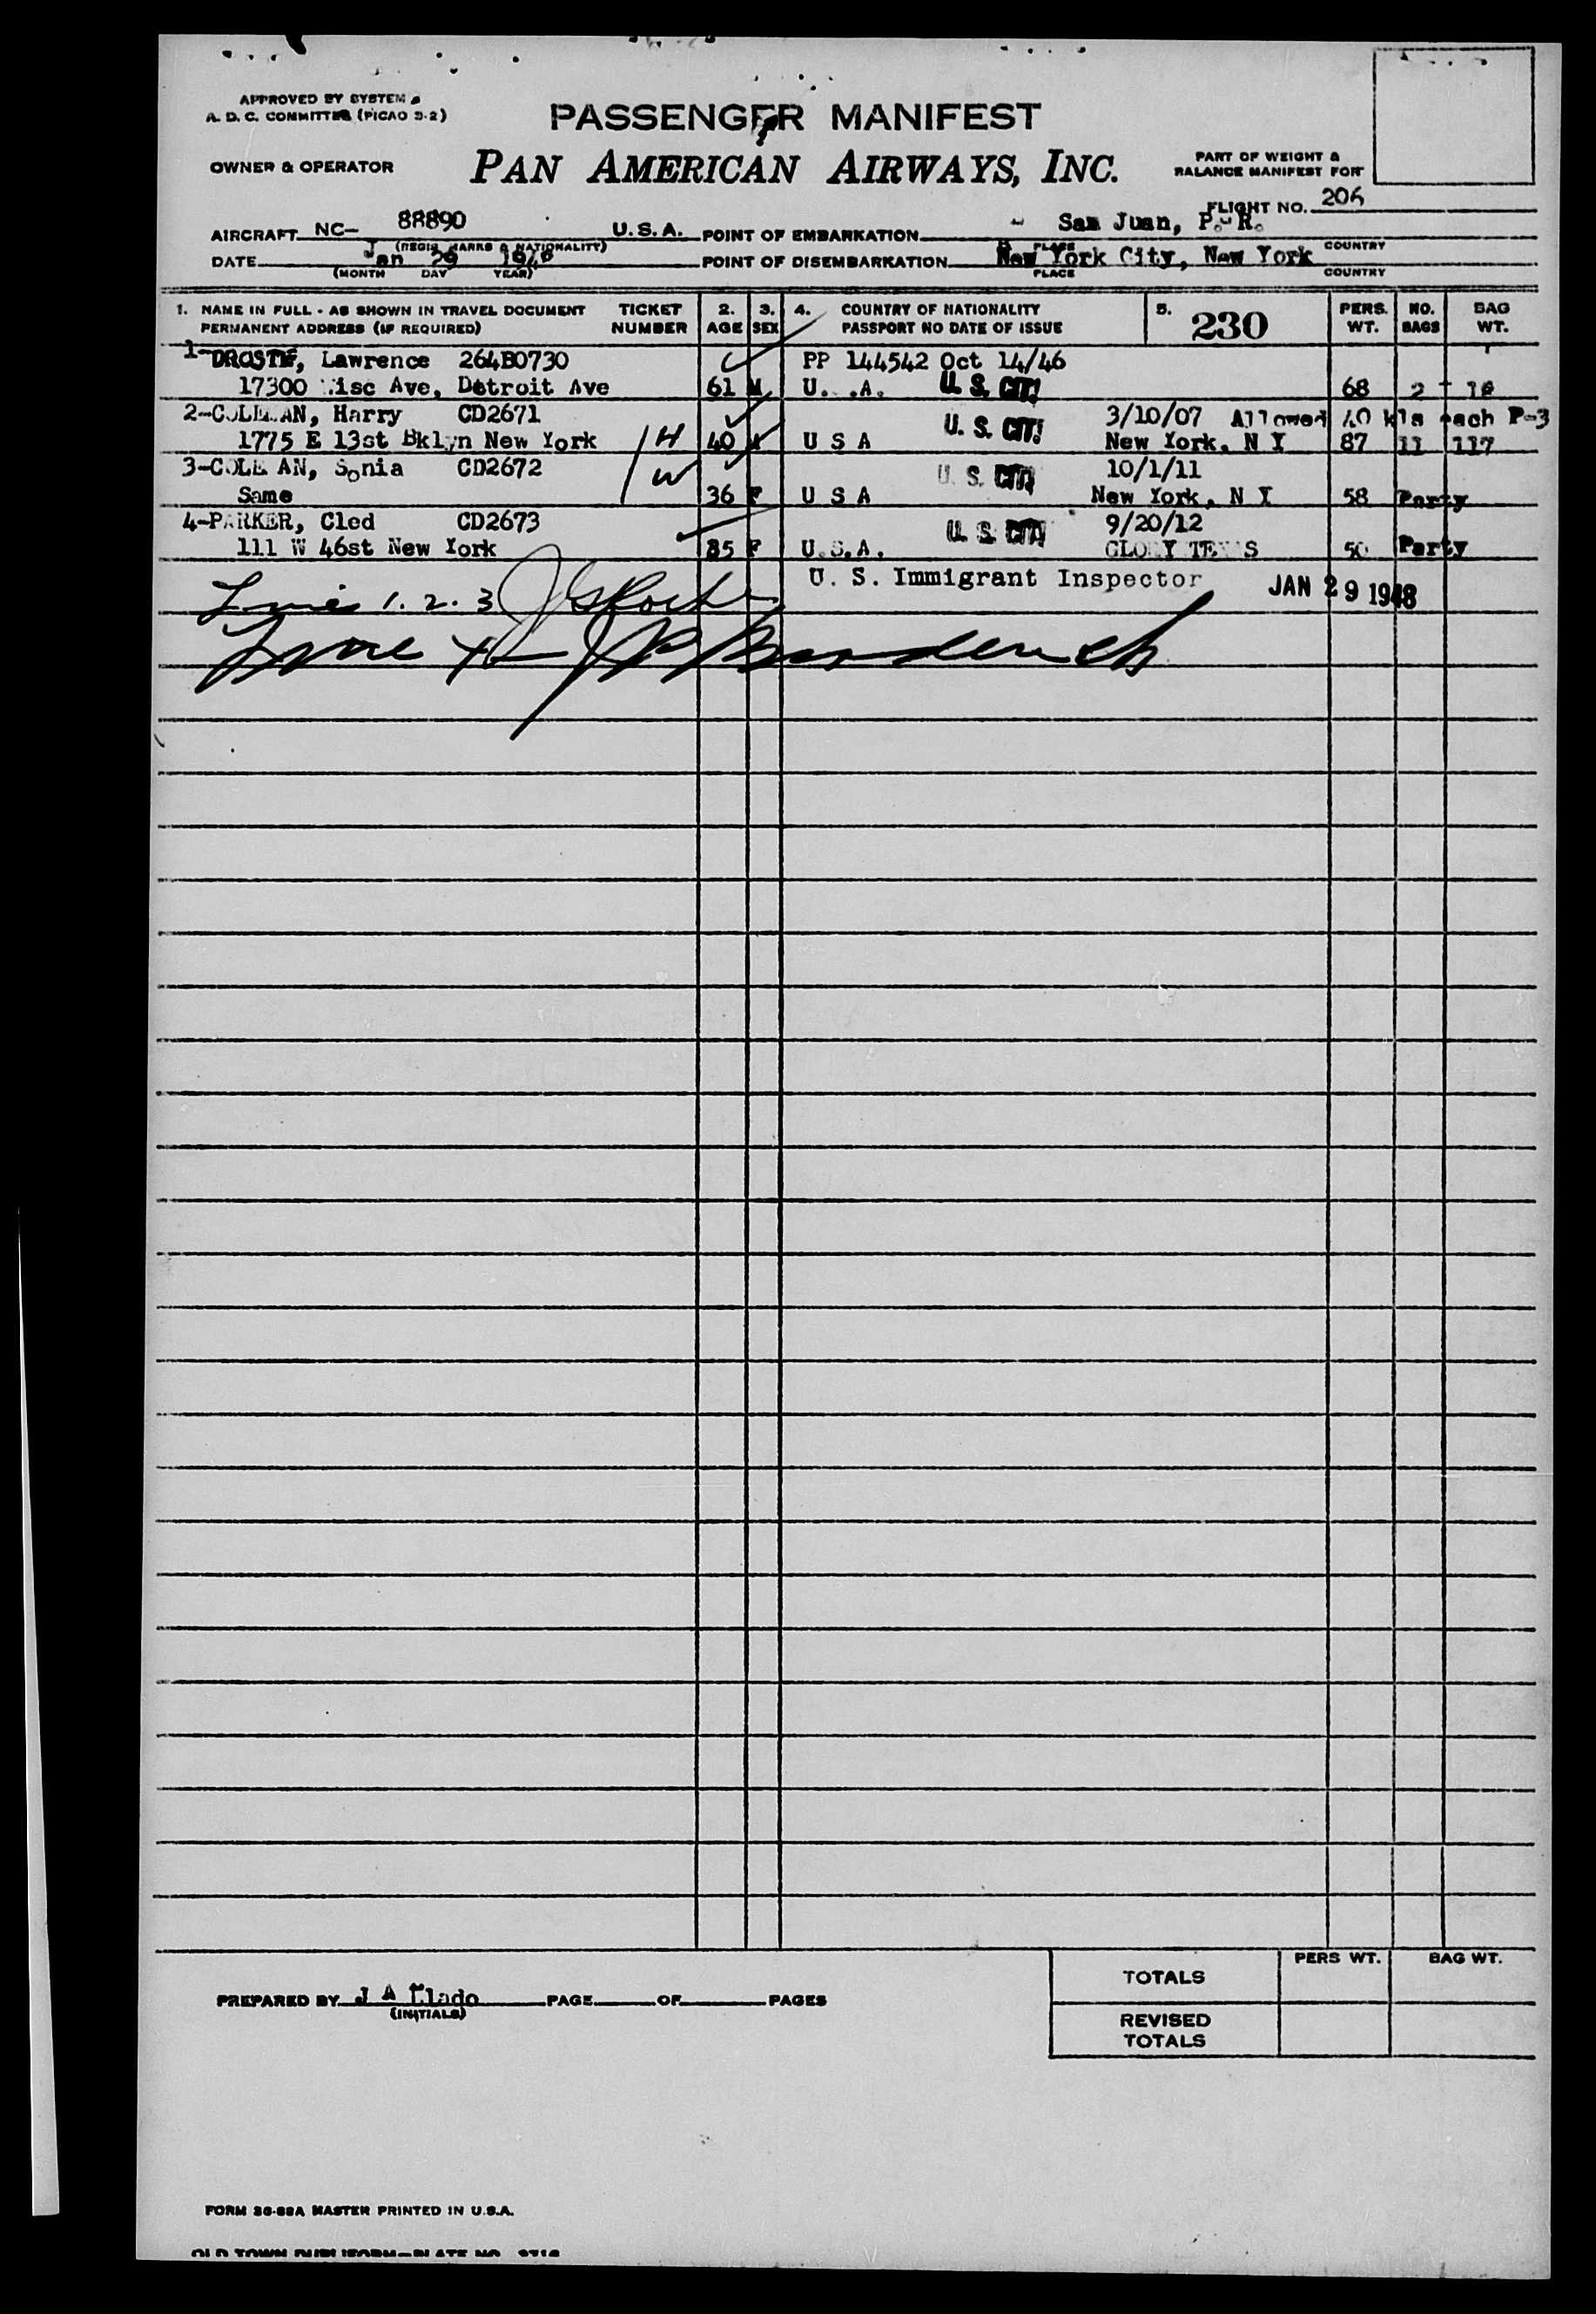 APPROVED BY SYSTEM
A. D. C. COMMITTEE (PICAO 3-2)
PASSENGER MANIFEST
OWNER & OPERATOR
PAN AMERICAN AIRWAYS, INC.
PART OF WEIGHT &
BALANCE MANIFEST FOR
FLIGHT NO. 206
AIRCRAFT NC- 88890 U.S.A. POINT OF EMBARKATION San Juan, P. R.
(REGIS. MARKS & NATIONALITY) PLACE COUNTRY
DATE Jan 29 1948 POINT OF DISEMBARKATION New York City, New York
(MONTH DAY YEAR) PLACE COUNTRY
1. NAME IN FULL - AS SHOWN IN TRAVEL DOCUMENT TICKET 2. 3. 4. COUNTRY OF NATIONALITY 5. 230 PERS. NO. BAG
PERMANENT ADDRESS (IF REQUIRED) NUMBER AGE SEX PASSPORT NO DATE OF ISSUE WT. BAGS WT.
1- Lawrence 264B0730 PP 144542 Oct 14/46
17300 Ave, Detroit Ave 61 M U. .A. U. S. CIT. 68 2
2-COLEMAN, Harry CD2671 U. S. CIT. 3/10/07 Allowed 40 kls each P-3
1775 E 13st Bklyn New York H 40 U S A New York, N Y 87 11 117
3-COLE AN, Sonia CD2672 U. S. CIT. 10/1/11
Same W 36 F U S A New York, N Y 58 Party
4-PARKER, Cled CD2673 U. S. CIT. 9/20/12
111 W 46st New York 35 F U.S.A. 50 Party
U. S. Immigrant Inspector JAN 29 1948
1. 2. 3
PREPARED BY J A PAGE OF PAGES
(INITIALS)
PERS WT. BAG WT.
TOTALS
REVISED
TOTALS
FORM 36-88A MASTER PRINTED IN U.S.A.